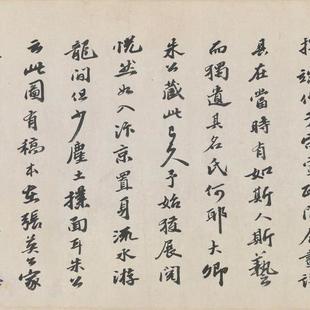 間今畫譜
具在當時有如斯人斯藝
而獨遺其名氏何耶大卿
朱公藏此已久予始獲展閱
恍然如入汴京置身流水游
龍間但少塵土撲面耳朱公
云此圖有稿本在張英公家